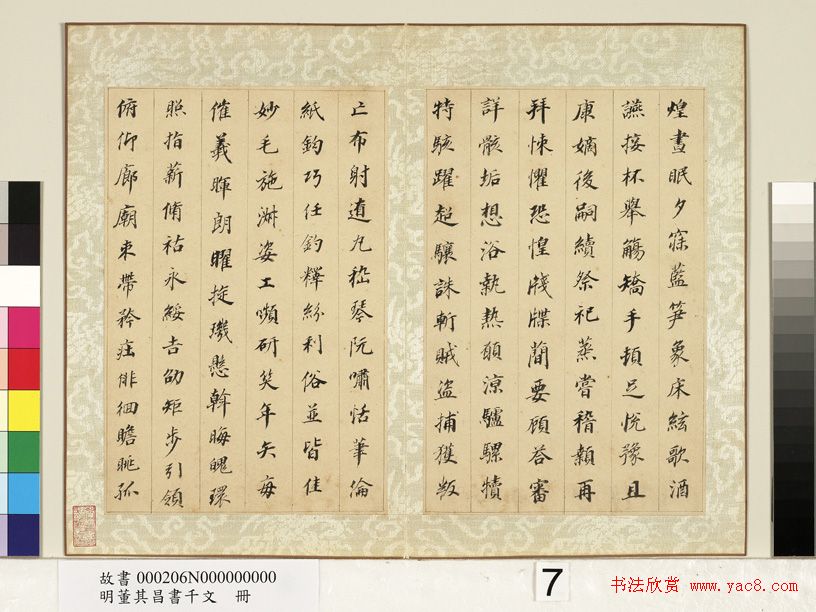 煌晝眠夕寐藍笋象床絃歌酒
讌接杯舉觴矯手頓足悅豫且
康嫡後嗣續祭祀蒸嘗稽顙再
拜悚懼恐惶牋牒蕳要顧答審
詳骸垢想浴執熱願涼驢騾犢
特駭躍超驤誅斬賊盜捕獲叛
亡布射遼丸嵇琴阮嘯恬筆倫
紙鈞巧任釣釋紛利俗並皆佳
妙毛施淑姿工嚬研笑年矢每
催羲暉朗曜旋璣懸斡晦魄環
照指薪脩祜永綏吉劭矩步引領
俯仰廊廟束帶矜莊徘徊瞻眺孤
故書 000206N000000000
明董其昌書千文 冊
7
书法欣赏 www.yac8.com